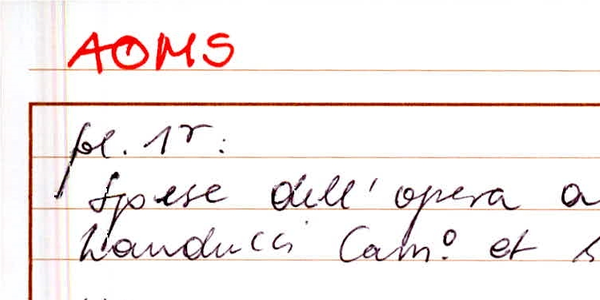 AOMS
fol. 1r:
Spese dell'opera a
Landucci Cam.º et